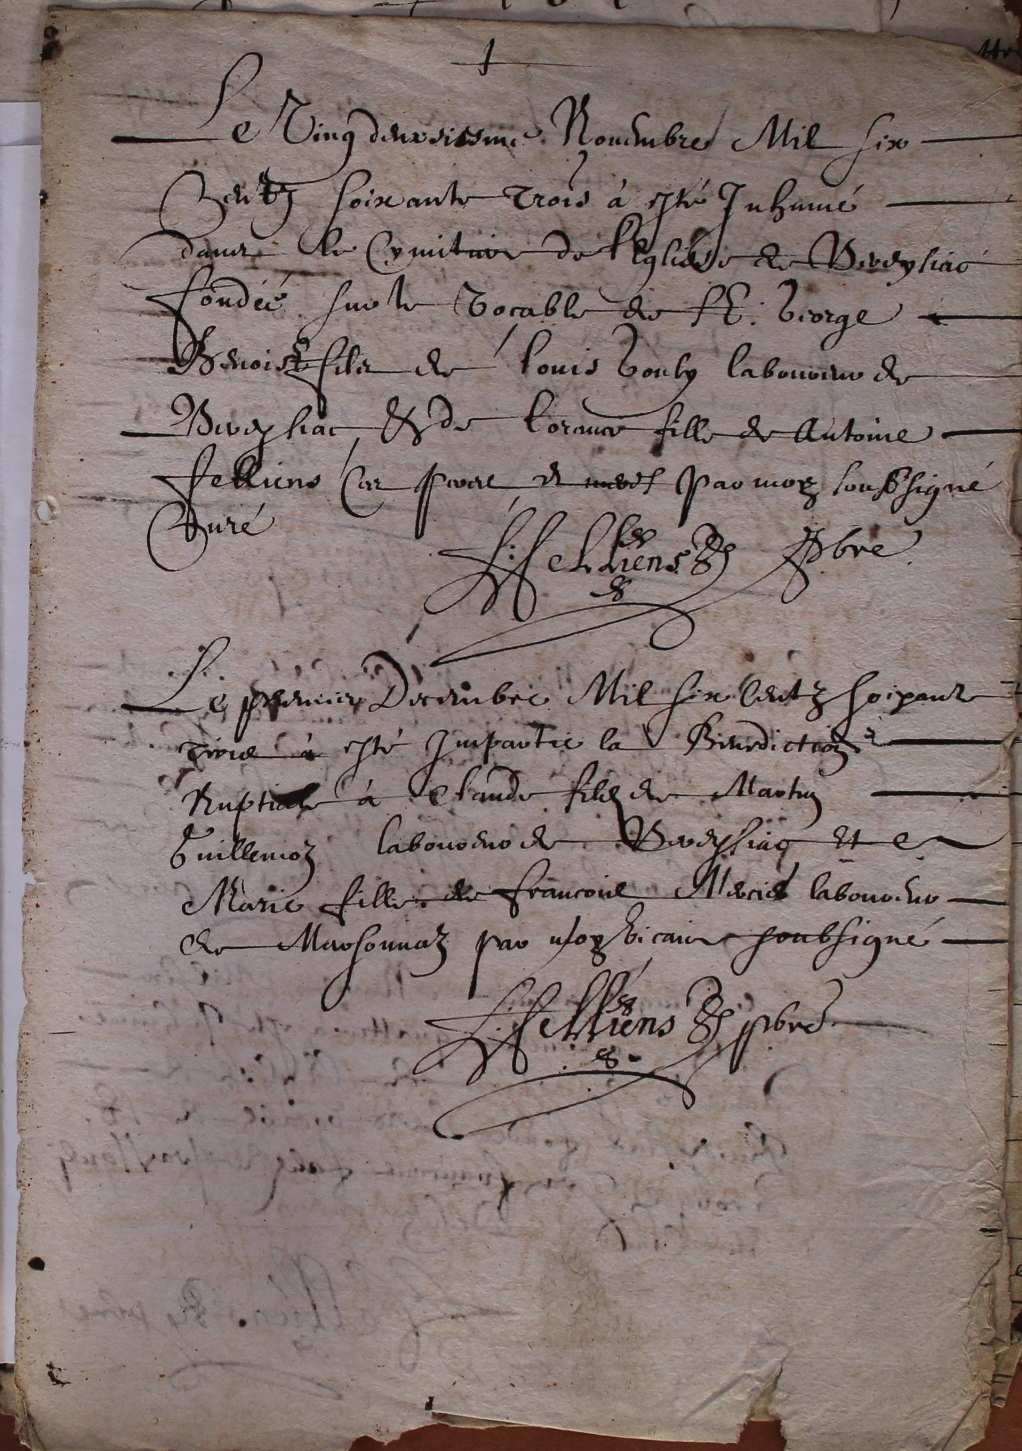 Le Vingdeuxsiesme Novembre Mil six
Centz soixante trois à esté Inhumé
dans le Cymitiere de l'Eglise de Bereysiac
fondée sur le vocable de St. George
Benoist fils de Louis Gouly laboureur de
Bereysiac & de Lorance fille de Antoine
Felliens par moy soubsigné
Curé
Felliens pbre
Le premier Decembre Mil six Centz soixante
trois à esté Impartie la Benediction
Nuptiale à Claude fils de Martin
Guillemoz laboureur de Bereysiac et
Marie fille de Francois Mercier laboureur
de Marsonnaz par moy vicaire soubsigné
Felliens pbre